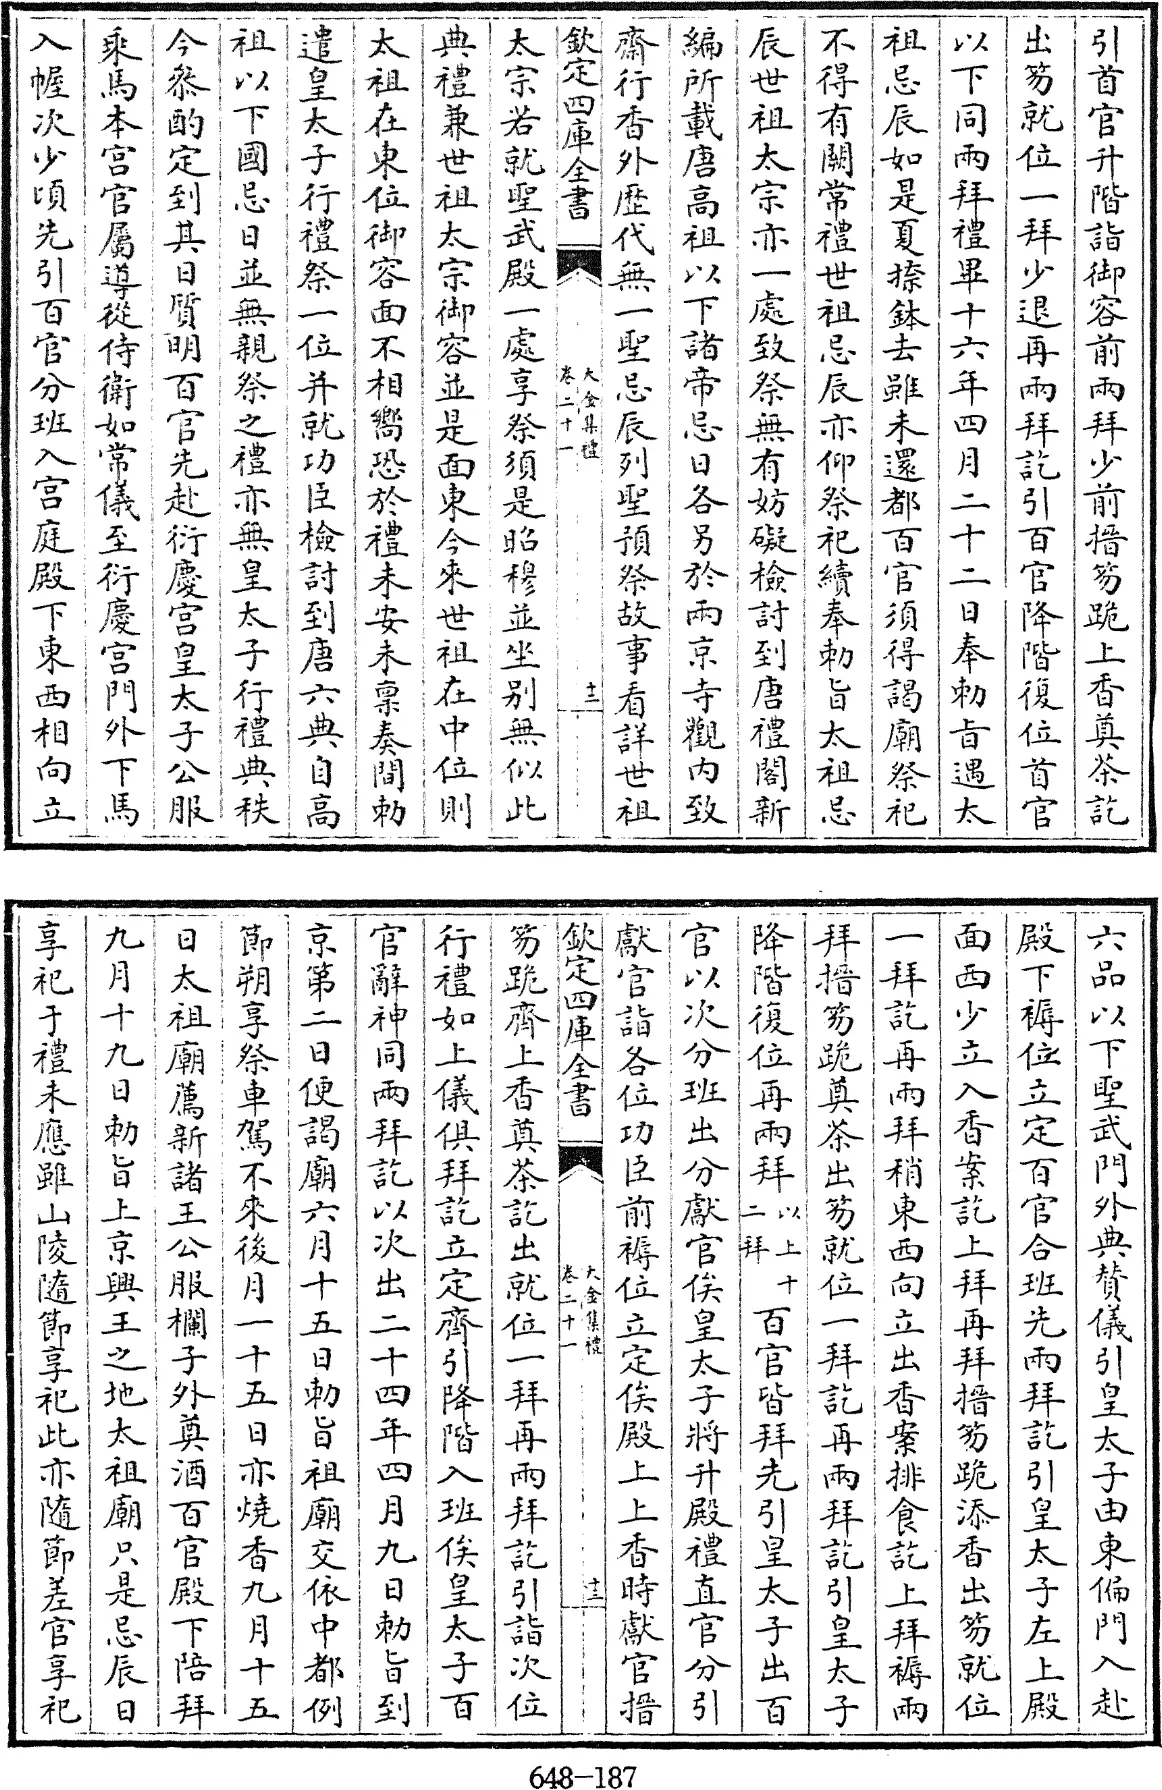 引首官升階詣御容前兩拜少前搢笏跪上香奠茶訖
出笏就位一拜少退再兩拜訖引百官降階復位首官
以下同兩拜禮畢十六年四月二十二日奉勅旨遇太
祖忌辰如是夏捺鉢去雖未還都百官須得謁廟祭祀
不得有闕常禮世祖忌辰亦仰祭祀續奉勅旨太祖忌
辰世祖太宗亦一處致祭無有妨礙檢討到唐禮閣新
編所載唐高祖以下諸帝忌日各另於兩京寺觀内致
齋行香外歷代無一聖忌辰列聖預祭故事看詳世祖
欽定四庫全書
大金集禮
卷二十一
十二
太宗若就聖武殿一處享祭須是昭穆並坐别無似此
典禮兼世祖太宗御容並是面東今來世祖在中位則
太祖在東位御容面不相嚮恐於禮未安未禀奏間勅
遣皇太子行禮祭一位并就功臣檢討到唐六典自高
祖以下國忌日並無親祭之禮亦無皇太子行禮典秩
今叅酌定到其日質明百官先赴衍慶宫皇太子公服
乘馬本宫官屬導從侍衛如常儀至衍慶宫門外下馬
入幄次少頃先引百官分班入宫庭殿下東西相向立
六品以下聖武門外典贊儀引皇太子由東偏門入赴
殿下褥位立定百官合班先兩拜訖引皇太子左上殿
面西少立入香案訖上拜再拜搢笏跪添香出笏就位
一拜訖再兩拜稍東西向立出香案排食訖上拜褥兩
拜搢笏跪奠茶出笏就位一拜訖再兩拜訖引皇太子
降階復位再兩拜以上十二拜百官皆拜先引皇太子出百
官以次分班出分獻官俟皇太子將升殿禮直官分引
獻官詣各位功臣前褥位立定俟殿上上香時獻官搢
欽定四庫全書
大金集禮
卷二十一
十三
笏跪齊上香奠茶訖出就位一拜再兩拜訖引詣次位
行禮如上儀俱拜訖立定齊引降階入班俟皇太子百
官辭神同兩拜訖以次出二十四年四月九日勅旨到
京第二日便謁廟六月十五日勅旨祖廟交依中都例
節朔享祭車駕不來後月一十五日亦燒香九月十五
日太祖廟薦新諸王公服欄子外奠酒百官殿下陪拜
九月十九日勅旨上京興王之地太祖廟只是忌辰日
享祀于禮未應雖山陵隨節享祀此亦隨節差官享祀
648-187